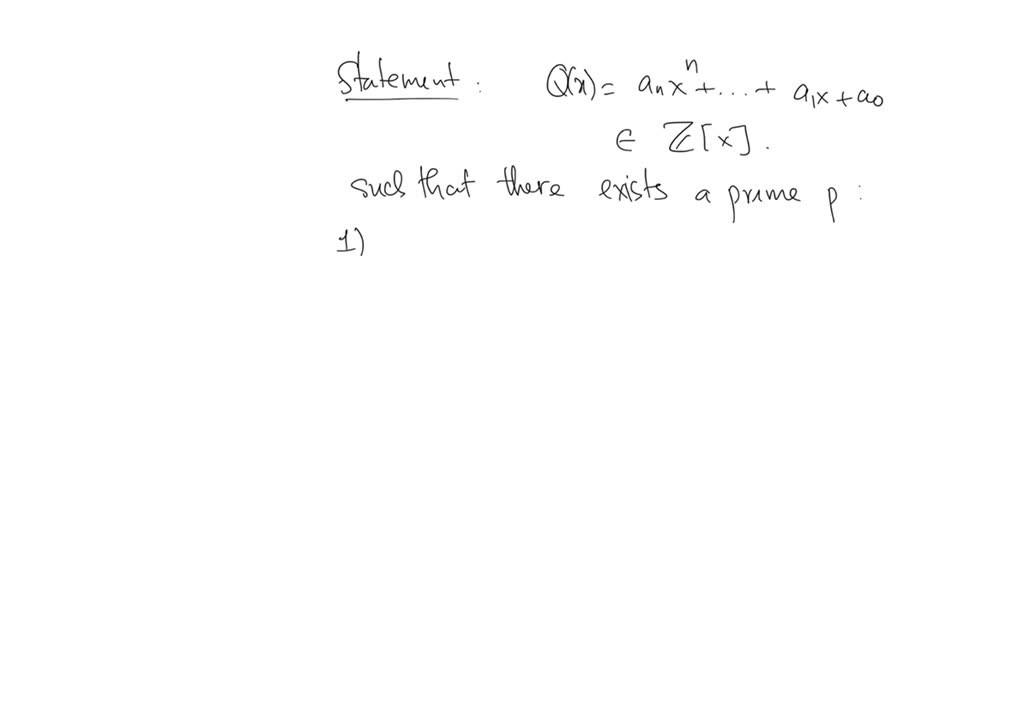 Statement : Q(x) = aₙxⁿ + ... + a₁x + a₀
∈ ℤ[x].
such that there exists a prime p :
1)